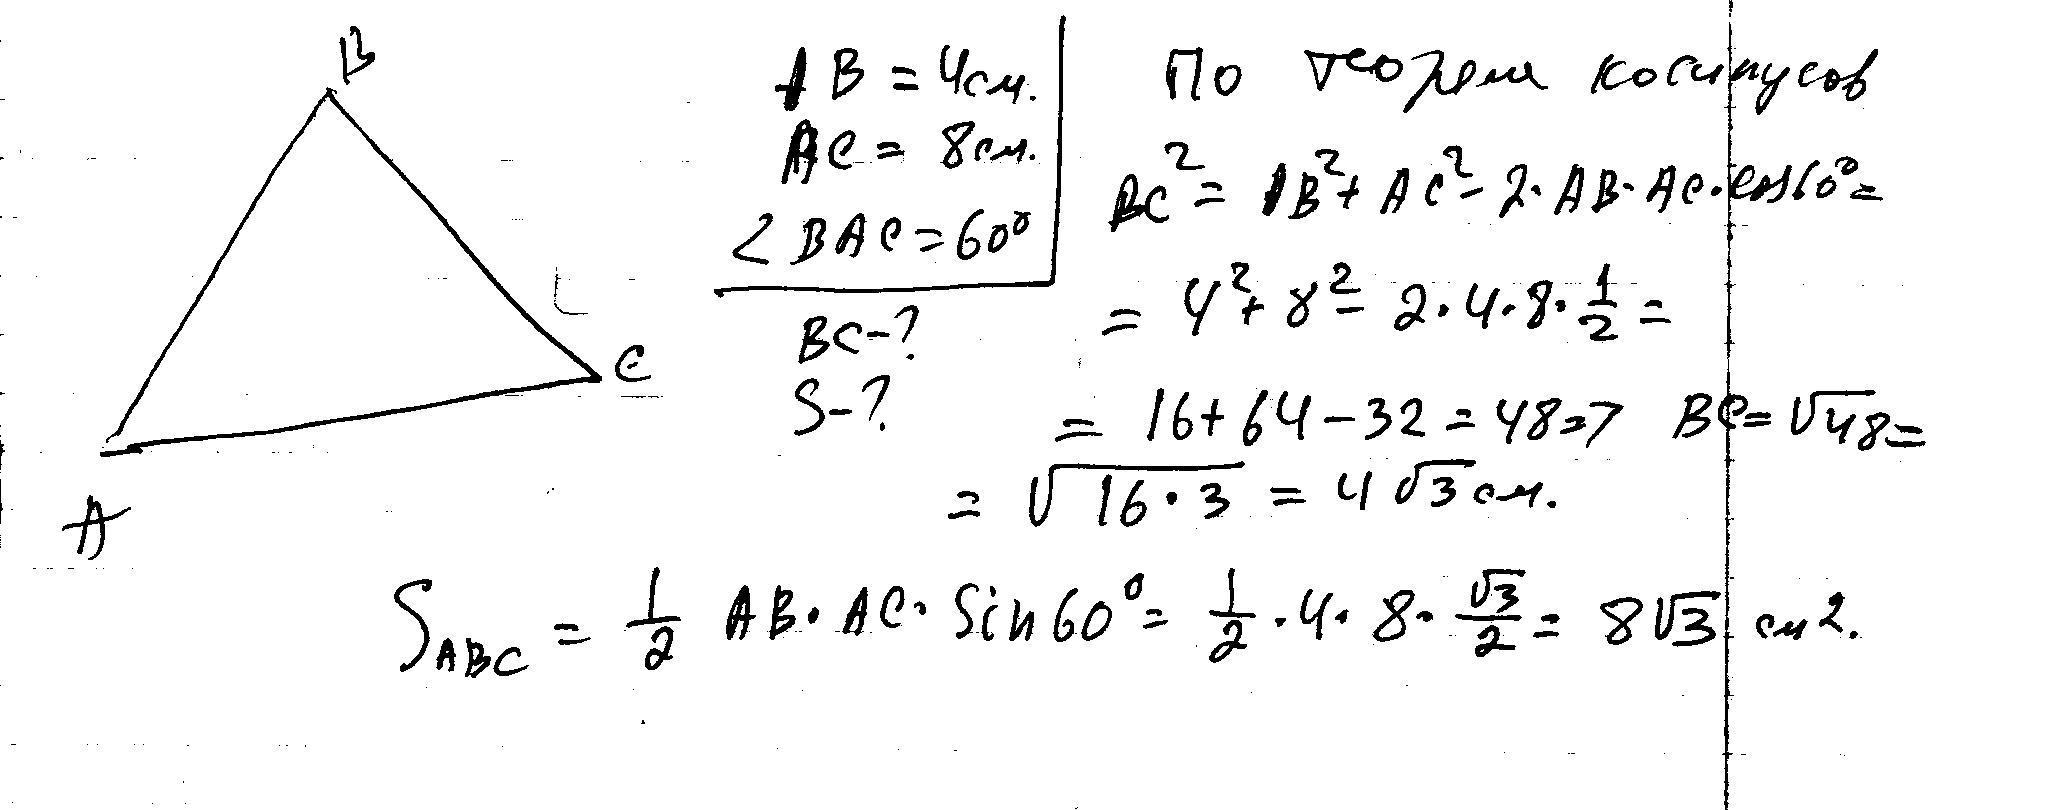 B
C
A
AB = 4см.
AC = 8см.
∠BAC = 60°
BC - ?
S - ?
По теореме косинусов
BC² = AB² + AC² - 2·AB·AC·cos60° =
= 4² + 8² - 2·4·8·1/2 =
= 16 + 64 - 32 = 48 => BC = √48 =
= √16·3 = 4√3 см.
S ABC = 1/2 AB·AC·Sin60° = 1/2·4·8·√3/2 = 8√3 см2.